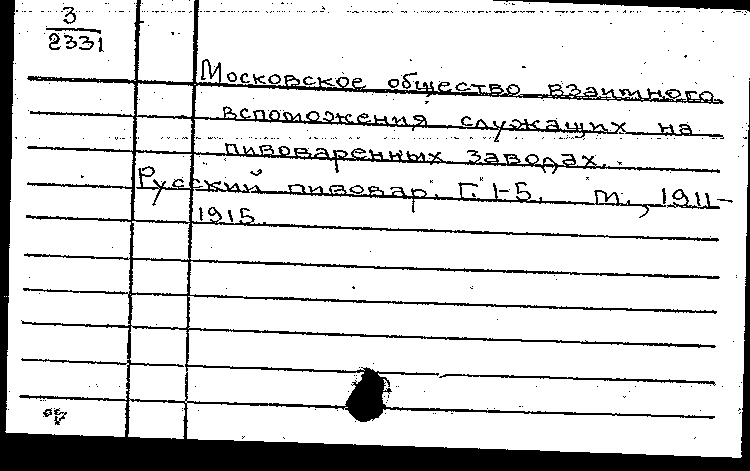 3
2331
Московское общество взаимного
вспоможения служащих на
пивоваренных заводах.
Русский пивовар. Г. 1-5. М., 1911-
1915.